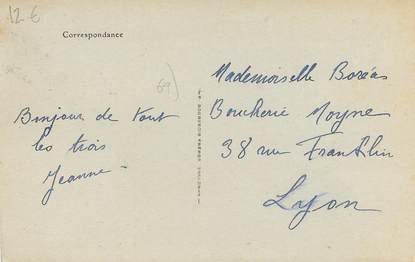 12 €
Correspondance
69)
Bonjour de tout
les trois
Jeanne
Mademoiselle Boréas
Boucherie Moyne
38 rue Franklin
Lyon